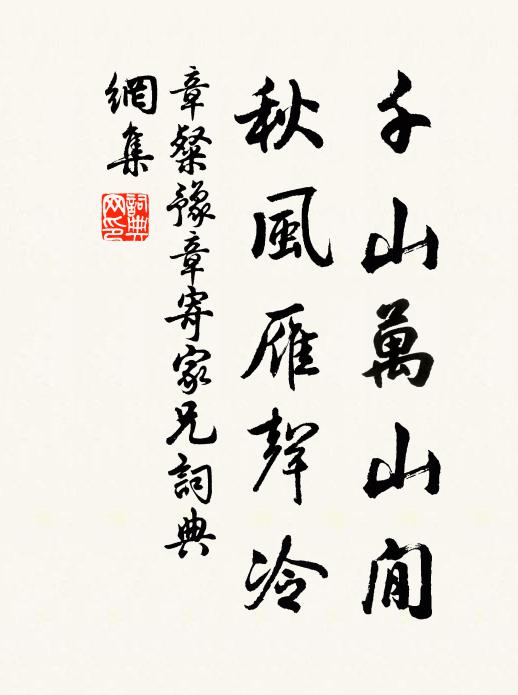 千山萬山間
秋風雁聲冷
章粲豫章寄家兄詞典
網集
詞典
网印